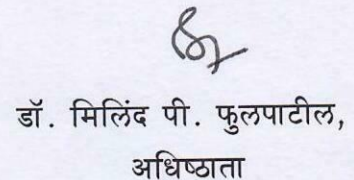 डॉ. मिलिंद पी. फुलपाटील,
अधिष्ठाता